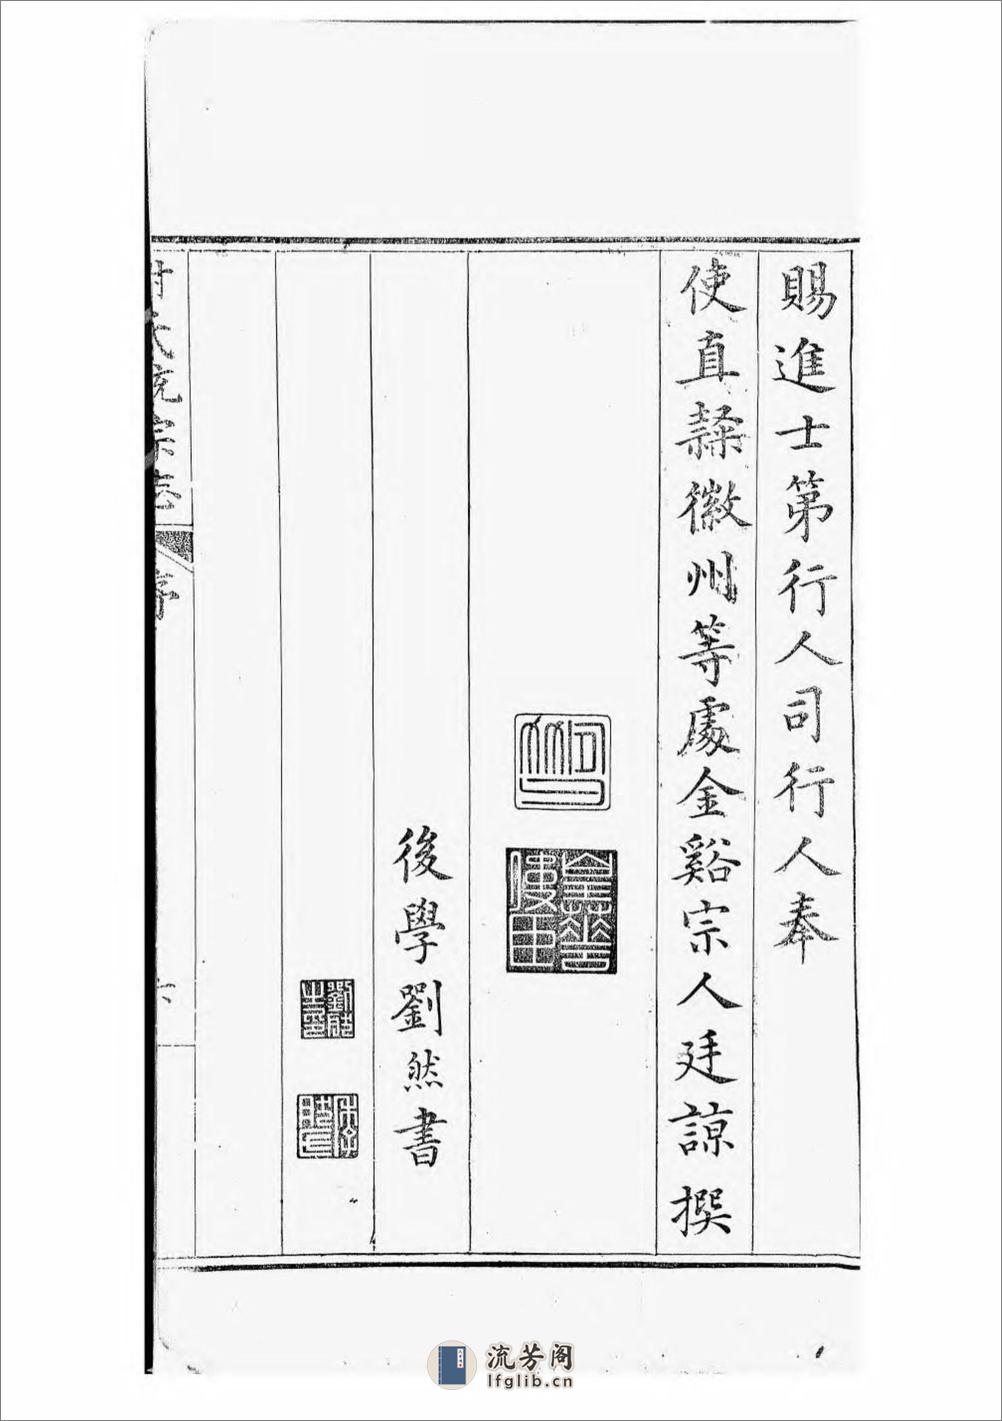 賜進士第行人司行人奉
使直隸徽州等處金谿宗人廷諒撰
後學劉然書
氏統宗志
序
流芳阁
lfglib.cn